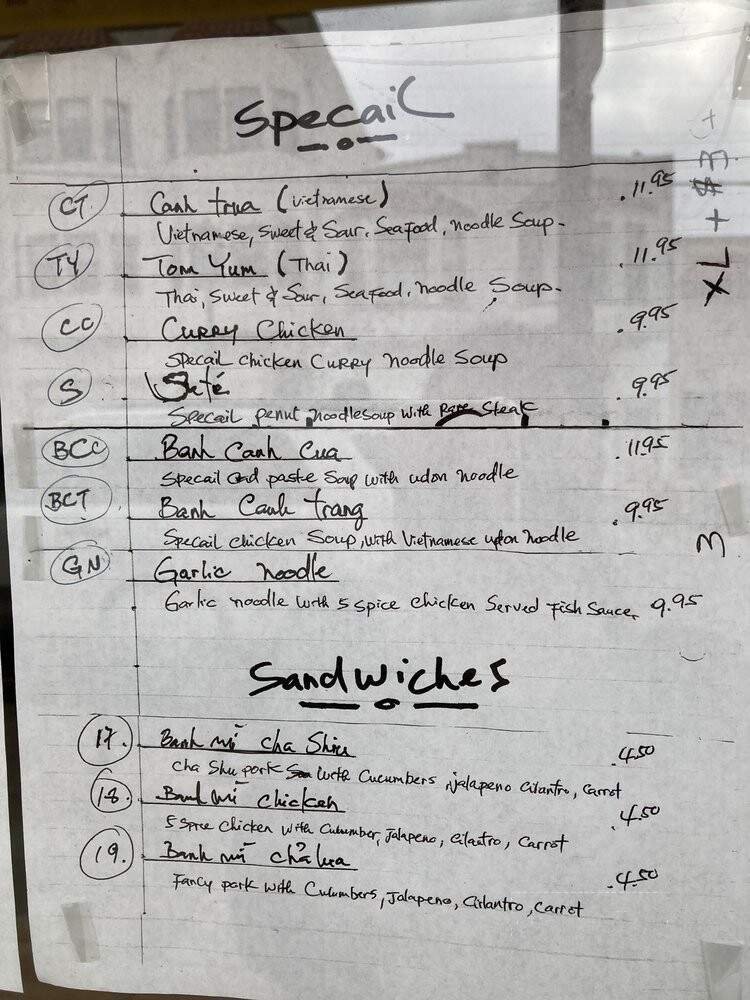 Specail
CT Canh trua (Vietnamese) .11.95
Vietnamese, Sweet & Sour, Seafood, noodle Soup.
TY Tom Yum (Thai) .11.95
Thai, Sweet & Sour, Seafood, noodle Soup.
XL + $3
CC Curry Chicken .9.95
Specail chicken Curry noodle Soup
S Saté .9.95
Specail penut noodle soup with Rare Steak
BCC Banh Canh Cua .11.95
Specail paste Soup with udon noodle
BCT Banh Canh trang .9.95
Specail chicken Soup, with Vietnamese udon noodle
GN Garlic noodle
Garlic noodle with 5 spice chicken Served Fish Sauce, 9.95
Sandwiches
17. Banh mì cha Shiu .4.50
Cha Shu pork with Cucumbers, jalapeno Cilantro, Carrot
18. Banh mì chicken .4.50
5 Spice Chicken with Cucumber, Jalapeno, Cilantro, Carrot
19. Banh mì chả lua .4.50
Fancy pork with Cucumbers, Jalapeno, Cilantro, Carrot